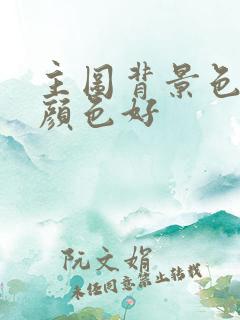 主图背景色
颜色好
阮文娟
未经同意禁止转载